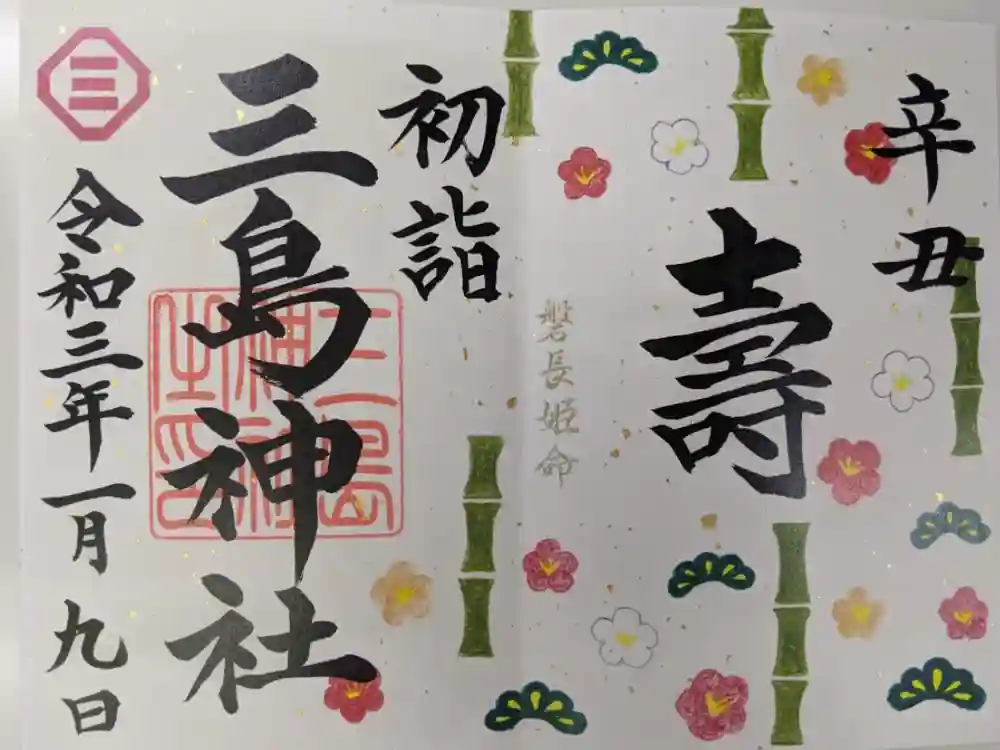 辛丑
壽
磐長姫命
初詣
三島神社
三島神社之印
三
令和三年一月九日